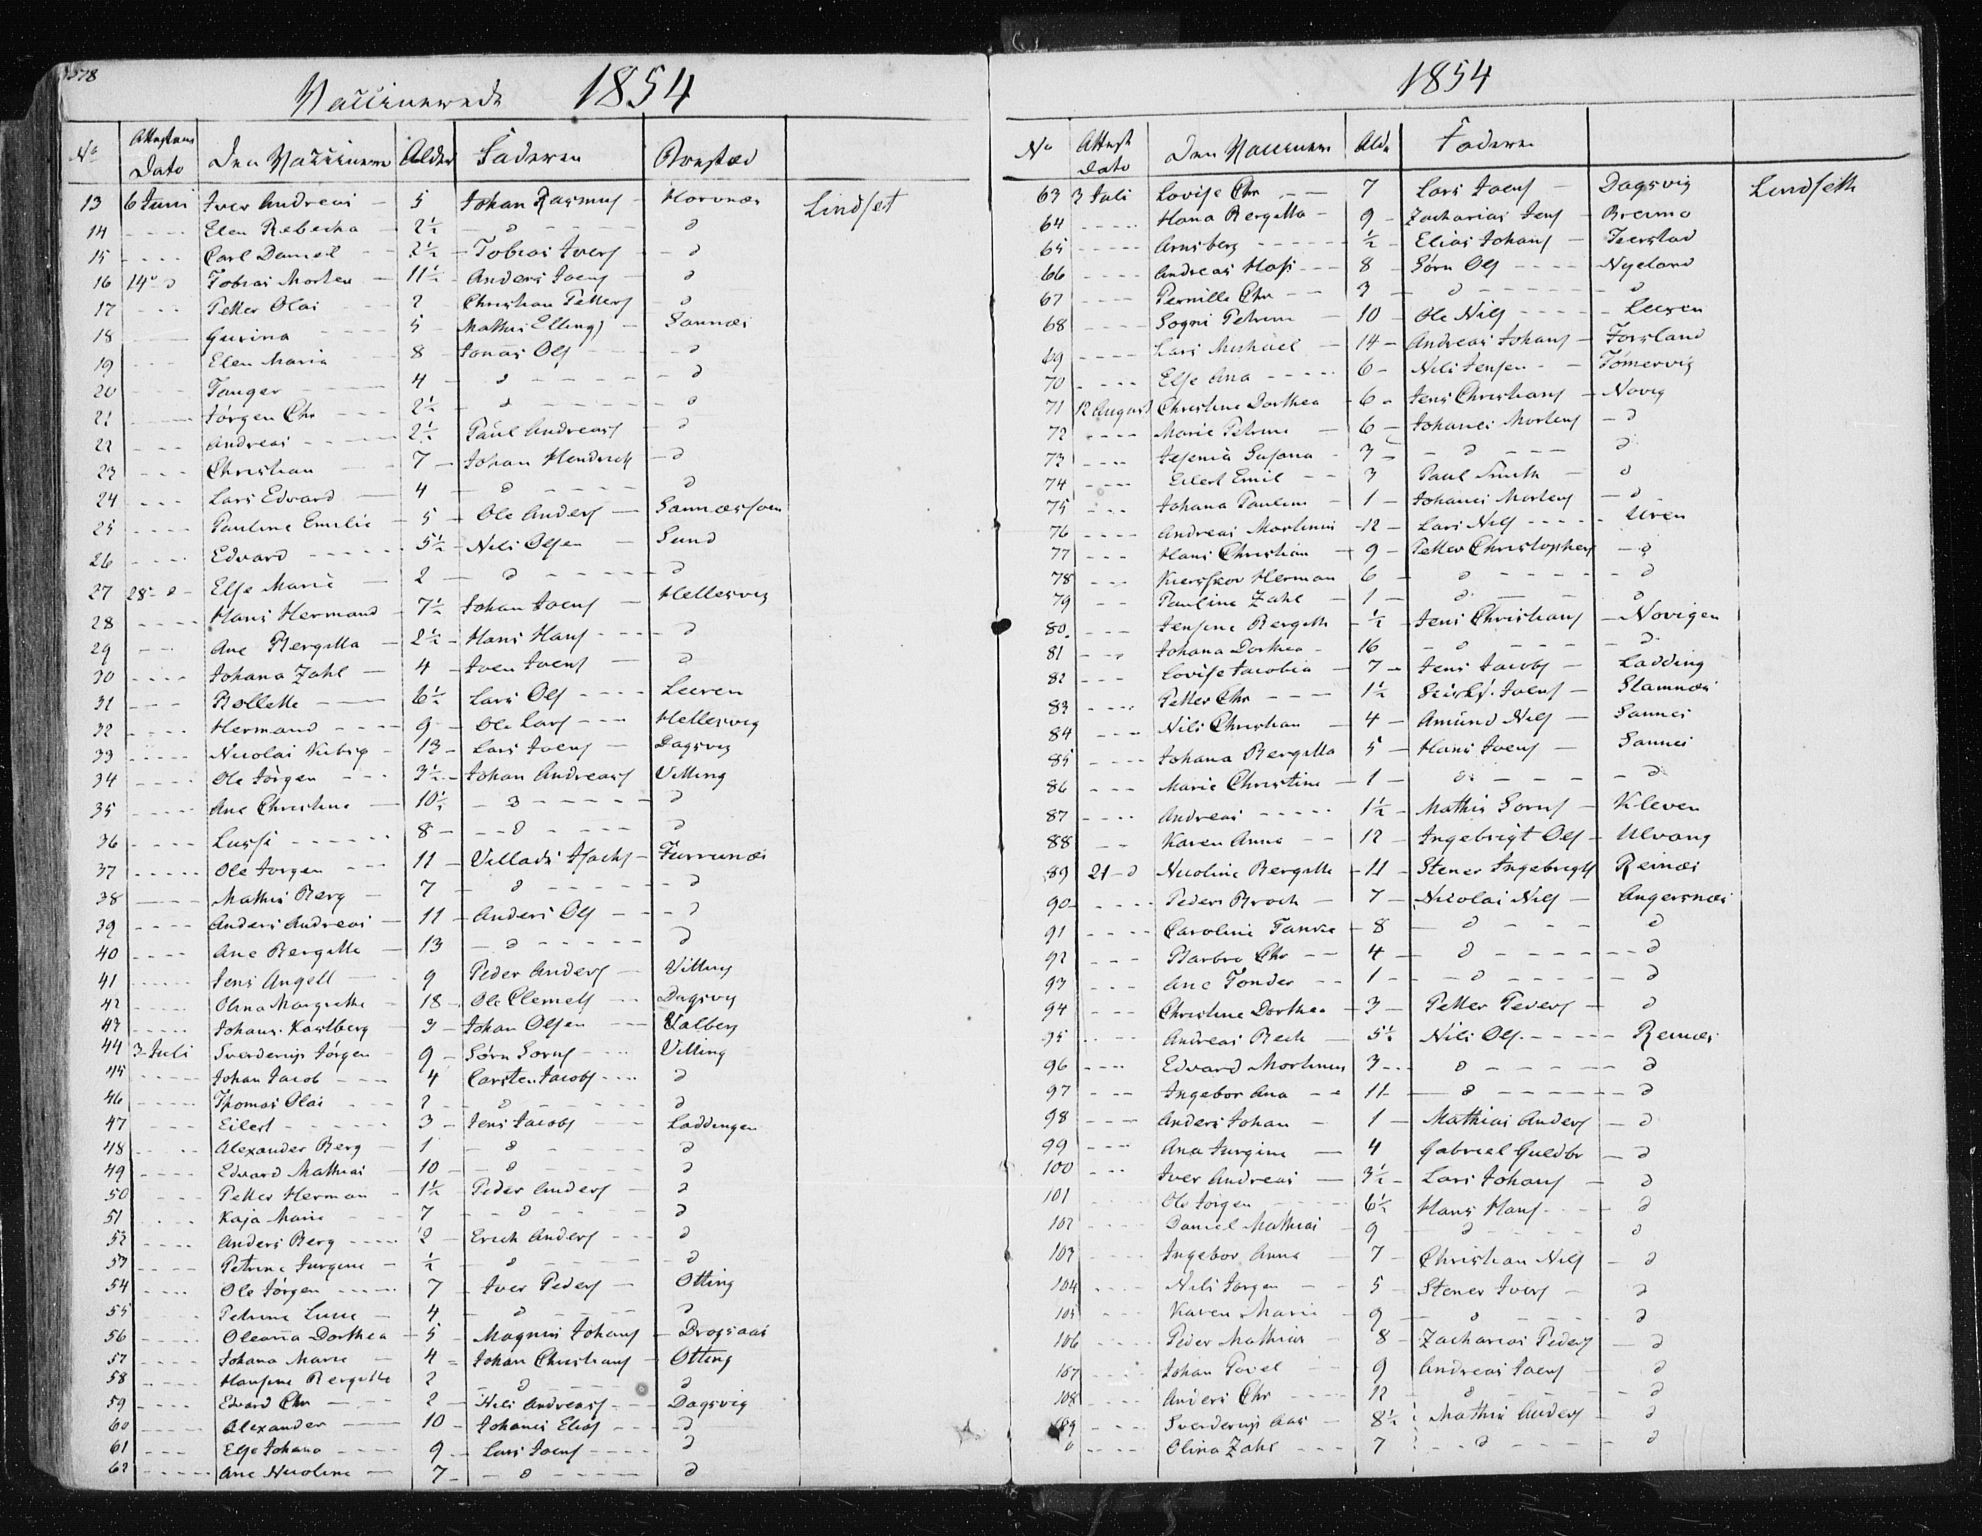 578
Vaccinerede 1854
No Attestens Dato Den Vaccinere Alder Faderen Bonsted
13 6 Juni Iver Andreas - 5 Johan Rasmus - Hornnæs Lindset
14 - - - - Elen Rebecka - 2½ - d - d
15 - - - - Carl Daniel - 2½ - Tobias Ivers - d
16 14 d Tobias Morten - 11½ - Anders Joens - d
17 - - - Petter Olai - 2 Christian Petters d
18 - - - Gurina - - - 5 - Mathis Ellings - Sannæs
19 - - - Elen Maria 8 - Jonas Ols - - d
20 - - - - 4 - d - - - - d
21 - - - Jørgen Chr - - - 2½ - d - - - - d
22 - - - Andreas - - - - 2½ - Paul Andreas - d
23 - - - Christian 7 - Johan Hendrich - d
24 - - - Lars Edvard - 4 - d - - - - d
25 - - - Pauline Emilie - 5 - Ole Anders -
26 - - - - Edvard - - - - 5½ - Nils Olsen - Sund
27 28 - d - Else Marie - 2 - d - - - d
28 - - - - Hans Hermand - 7½ - Johan Joens - Hellesvig
29 - - - Ane Bergitta - 2½ - Hans Hans - - - d
30 - - - - Johana Zahl - 4 - Iver Ivers - d
31 - - - Bollette - 6½ - Lars Ols - - - - Leeren
32 - - - - Hermand - - - - 9 - Ole Lars - - - Hellesvig
33 - - - - - Nicolai - 13 - Lars Joens - Dagsvig
34 - - - - Ole Jörgen - - - 3½ - Johan Andreas Vitting
35 - - - - - Ane Christine - 10½ - d - - - - - d
36 - - - - - - - - 8 - - - d - - - - d
37 - - - - - Ole Jorgen - - - 11 - Villads Isachs - Furrunæs
38 - - - Mathis Berg - 7 - d - - - - - d
39 - - - - Anders Andreas - 11 - Anders Ols - - - d
40 - - - - Ane Bergitte - 13 - d - - - - - d
41 - - - - - Jens Angell - 9 Peder Anders - Vitting
42 - - - - - Olina Margrethe - 18 - Ole Clemets - - - Dagsvig
43 - - - - - Johan. Karlberg - 3 - Johan Olsen - - - Valberg
44 3 Juli Sverderup Jörgen - 9 - Sörn Sorns - - - - Vitting
45 - - - - - Johan Jacob - - - - 4 Carsten Jacobs - - - - d
46 - - - - - Thomas Olai - - - 2 - d - - - - - d
47 - - - - Eilert - - - - - - 3 - Jens Jacobs - - - - Laddingen
48 - - - - Alexander Berg - 1 - d - - - - d
49 - - - - Edvard Mathias - 10 - d - - - - d
50 - - - - Petter Herman - 1½ - Peder Anders - d
51 - - - Kaja Marie - - - 7 - d - - - d
52 - - - - Anders Berg - - - - - 2 - Erich Anders - - - d
53 - - - - Petrine Jurgine - ½ - d - - - - d
54 - - - - Ole Jörgen - - - - - 7 Iver Peders - Otting
55 - - - - Petrine - 4 - d - - - - d
56 - - - - - Oleana Dorthea - 5 - Magnus Johans -
57 - - - - - Johana Marie - 4 - Johan Christians - Otting
58 - - - - Hansine Bergitte 2 - d - - - - d
59 - - - - - Edvard Chr - - - - 2 - Nils Andreas - - - Dagsvig
60 - - - - - Alexander - - - 10 - Johanis Elias - - - d
61 - - - Else Johana - - - - 9 - Lars Joens - - - - d
62 - - - - - Ane Nicoline - 7 - - d - - - - d
1854
No Attest Dato Den Vaccinere Alde Faderen
63 3 Juli Lovise Chr - - - 7 - Lars Joens - Dagsvig Lindseth
64 - - - - - Hana Bergitta - 9 - Zacharias Jens - Breimo
65 - - - - - Arnsberg - - - - - ½ - Elias Johans -
66 - - - - Andreas Hass - - - 8 - Sörn Ols - - - - Nyeland
67 - - - - Pernille Chr - - 3 - d - - - - - d
68 - - - - Petrine - 10 - Ole Nils - - - - Leeren
69 - - - - Lars Mickael - 14 - Andreas Johans - Forsland
70 - - - - Else Ana - - - - - 6 - Nils Jensen - - Tömervig
71 12 August Christine Dorthea - 6 - Jens Christians - Novig
72 - - - - Marie Petrine - 6 - Johanes Mortens - d
73 - - - - 3 - d - - - - d
74 - - - - Eilert Emil - - 3 Paul Smith - d
75 - - - Johana Pauline - 1 - Johanes Mortens - d
76 Andreas Mortinus - 12 - Lars Nils - - - - - Uren
77 - - - Hans Christian - 9 - Petter Christophers - d
78 - - - Herman 6 - d - - - - - d
79 - - Pauline Zahl - 1 - d - - - d
80 - - - Jensine Bergitte - ½ - Jens Christians - Novigen
81 - - - Johana Dorthea - 16 - d - - - - - d
82 - - - Lovise Jacobia - 7 - Jens Jacobs - Ladding
83 - - - - Petter Chr - - - 1½ - Joens - Stamnæs
84 - - - - Nils Christian - 4 - Amund Nils - Sannes
85 - - - - Johana Bergitta 5 - Hans Joens - Sannes
86 - - - Marie Christine - 1 - d - - - - d
87 - - - - Andreas - - - - - 1½ - Mathis Sorns - Kleven
88 - - Karen Anna - - 12 - Ingebrigt Ols - Ulvang
89 21 - d Nicoline Bergitte - 11 - Stener Ingebrigts Reinæs
90 - - - - - Peder Broch - 7 - Nicolai Nils - Angersnæs
91 - - - - Caroline - 8 - d - - - - d
92 - - - Barbro Chr - - 4 - d - - - - - d
93 - - - Ane Tonder - - 1 - - d - - - - d
94 - - - Christine Dorthea - 3 - Petter Peders - d
95 - - - - Andreas Bech - 5½ - Nils Ols - - - - - Reinæs
96 - - - - Edvard Mortinus 3 - - - d - - - - - d
97 - - - Ingebor Ana - - 11 - d - - - - - d
98 - - - Anders Johan - 1 - Mathias Anders - d
99 - - - - Ana Jurgine - 4 Gabriel Guldbr - d
100 - - - Iver Andreas - 3½ - Lars Johans - d
101 Ole Jörgen - - - - 6½ Hans Hans - - - - d
102 - - - - Daniel Mathias - 9 - d - - - - d
103 - - - - Ingebor Anna - 7 - Christian Nils - d
104 - - - - Nils Jorgen - - 5 - Stener Ivers - d
105 - - - - Karen Marie - 9 - d - - - - d
106 - - - - Peder Mathias - 8 - Zacharias Peders - d
107 - - - - Johan - 9 Andreas Joens - d
108 - - - Anders Chr - - - - 12 - d - - - - d
109 - - - - Sverderup Aas - 8½ Mathis Anders - d
- - - - Olina Zahl - - - - 7 - - d - - - - d